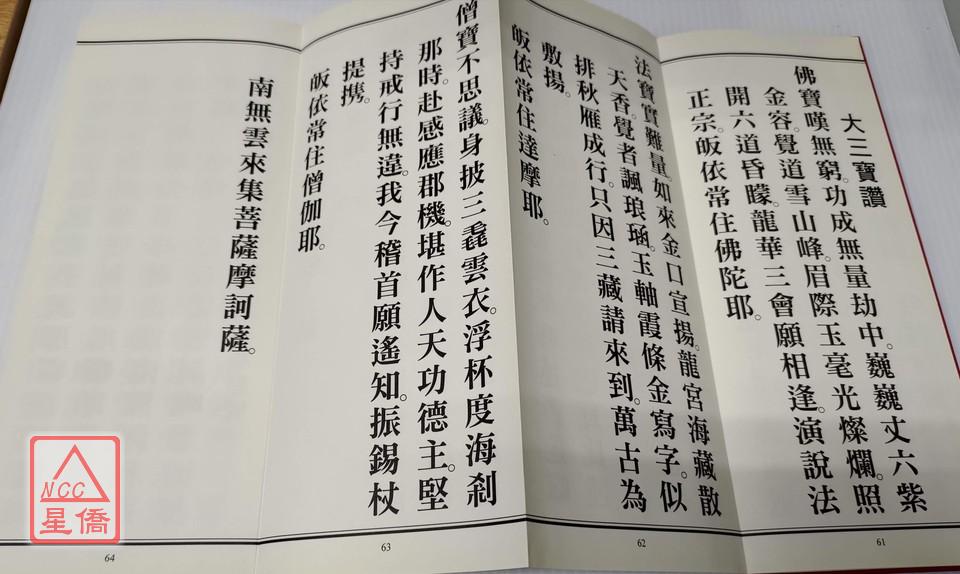 大三寶讚
佛寶嘆無窮。功成無量劫中。巍巍丈六紫
金容。覺道雪山峰。眉際玉毫光燦爛。照
開六道昏矇。龍華三會願相逢。演說法
正宗。皈依常住佛陀耶。
61
法寶實難量。如來金口宣揚。龍宮海藏散
天香。覺者諷琅函。玉軸霞條金寫字。似
排秋雁成行。只因三藏請來到。萬古為
敷揚。
皈依常住達摩耶。
62
僧寶不思議。身披三毳雲衣。浮杯度海剎
那時。赴感應郡機。堪作人天功德主。堅
持戒行無違。我今稽首願遙知。振錫杖
提携。
皈依常住僧伽耶。
63
南無雲來集菩薩摩訶薩。
64
NCC
星僑